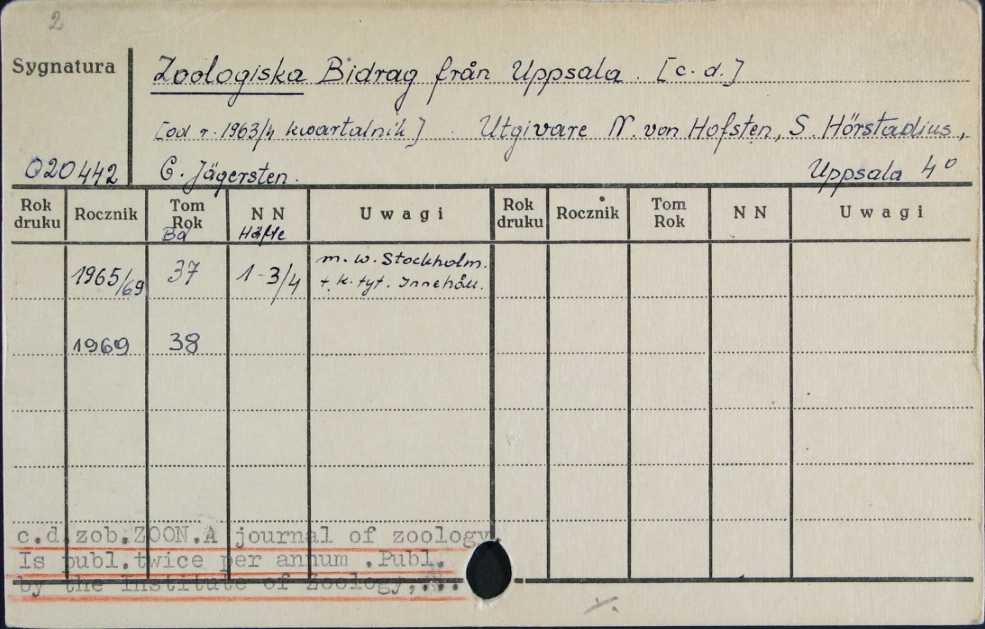 2
Sygnatura
Zoologiska Bidrag från Uppsala. [c. d.]
[od r. 1963/4 kwartalnik]. Utgivare N. von Hofsten, S. Hörstadius,
Q20442 G. Jägersten. Uppsala 4°
Rok druku Rocznik Tom Rok N N Uwagi Rok druku Rocznik Tom Rok N N Uwagi
Bd Häfte
1965/69 37 1-3/4 m. w. Stockholm.
+ k. tyt. Innehåll.
1969 38
c.d.zob.ZOON.A journal of zoology.
Is publ.twice per annum .Publ.
by the Institute of Zoology,